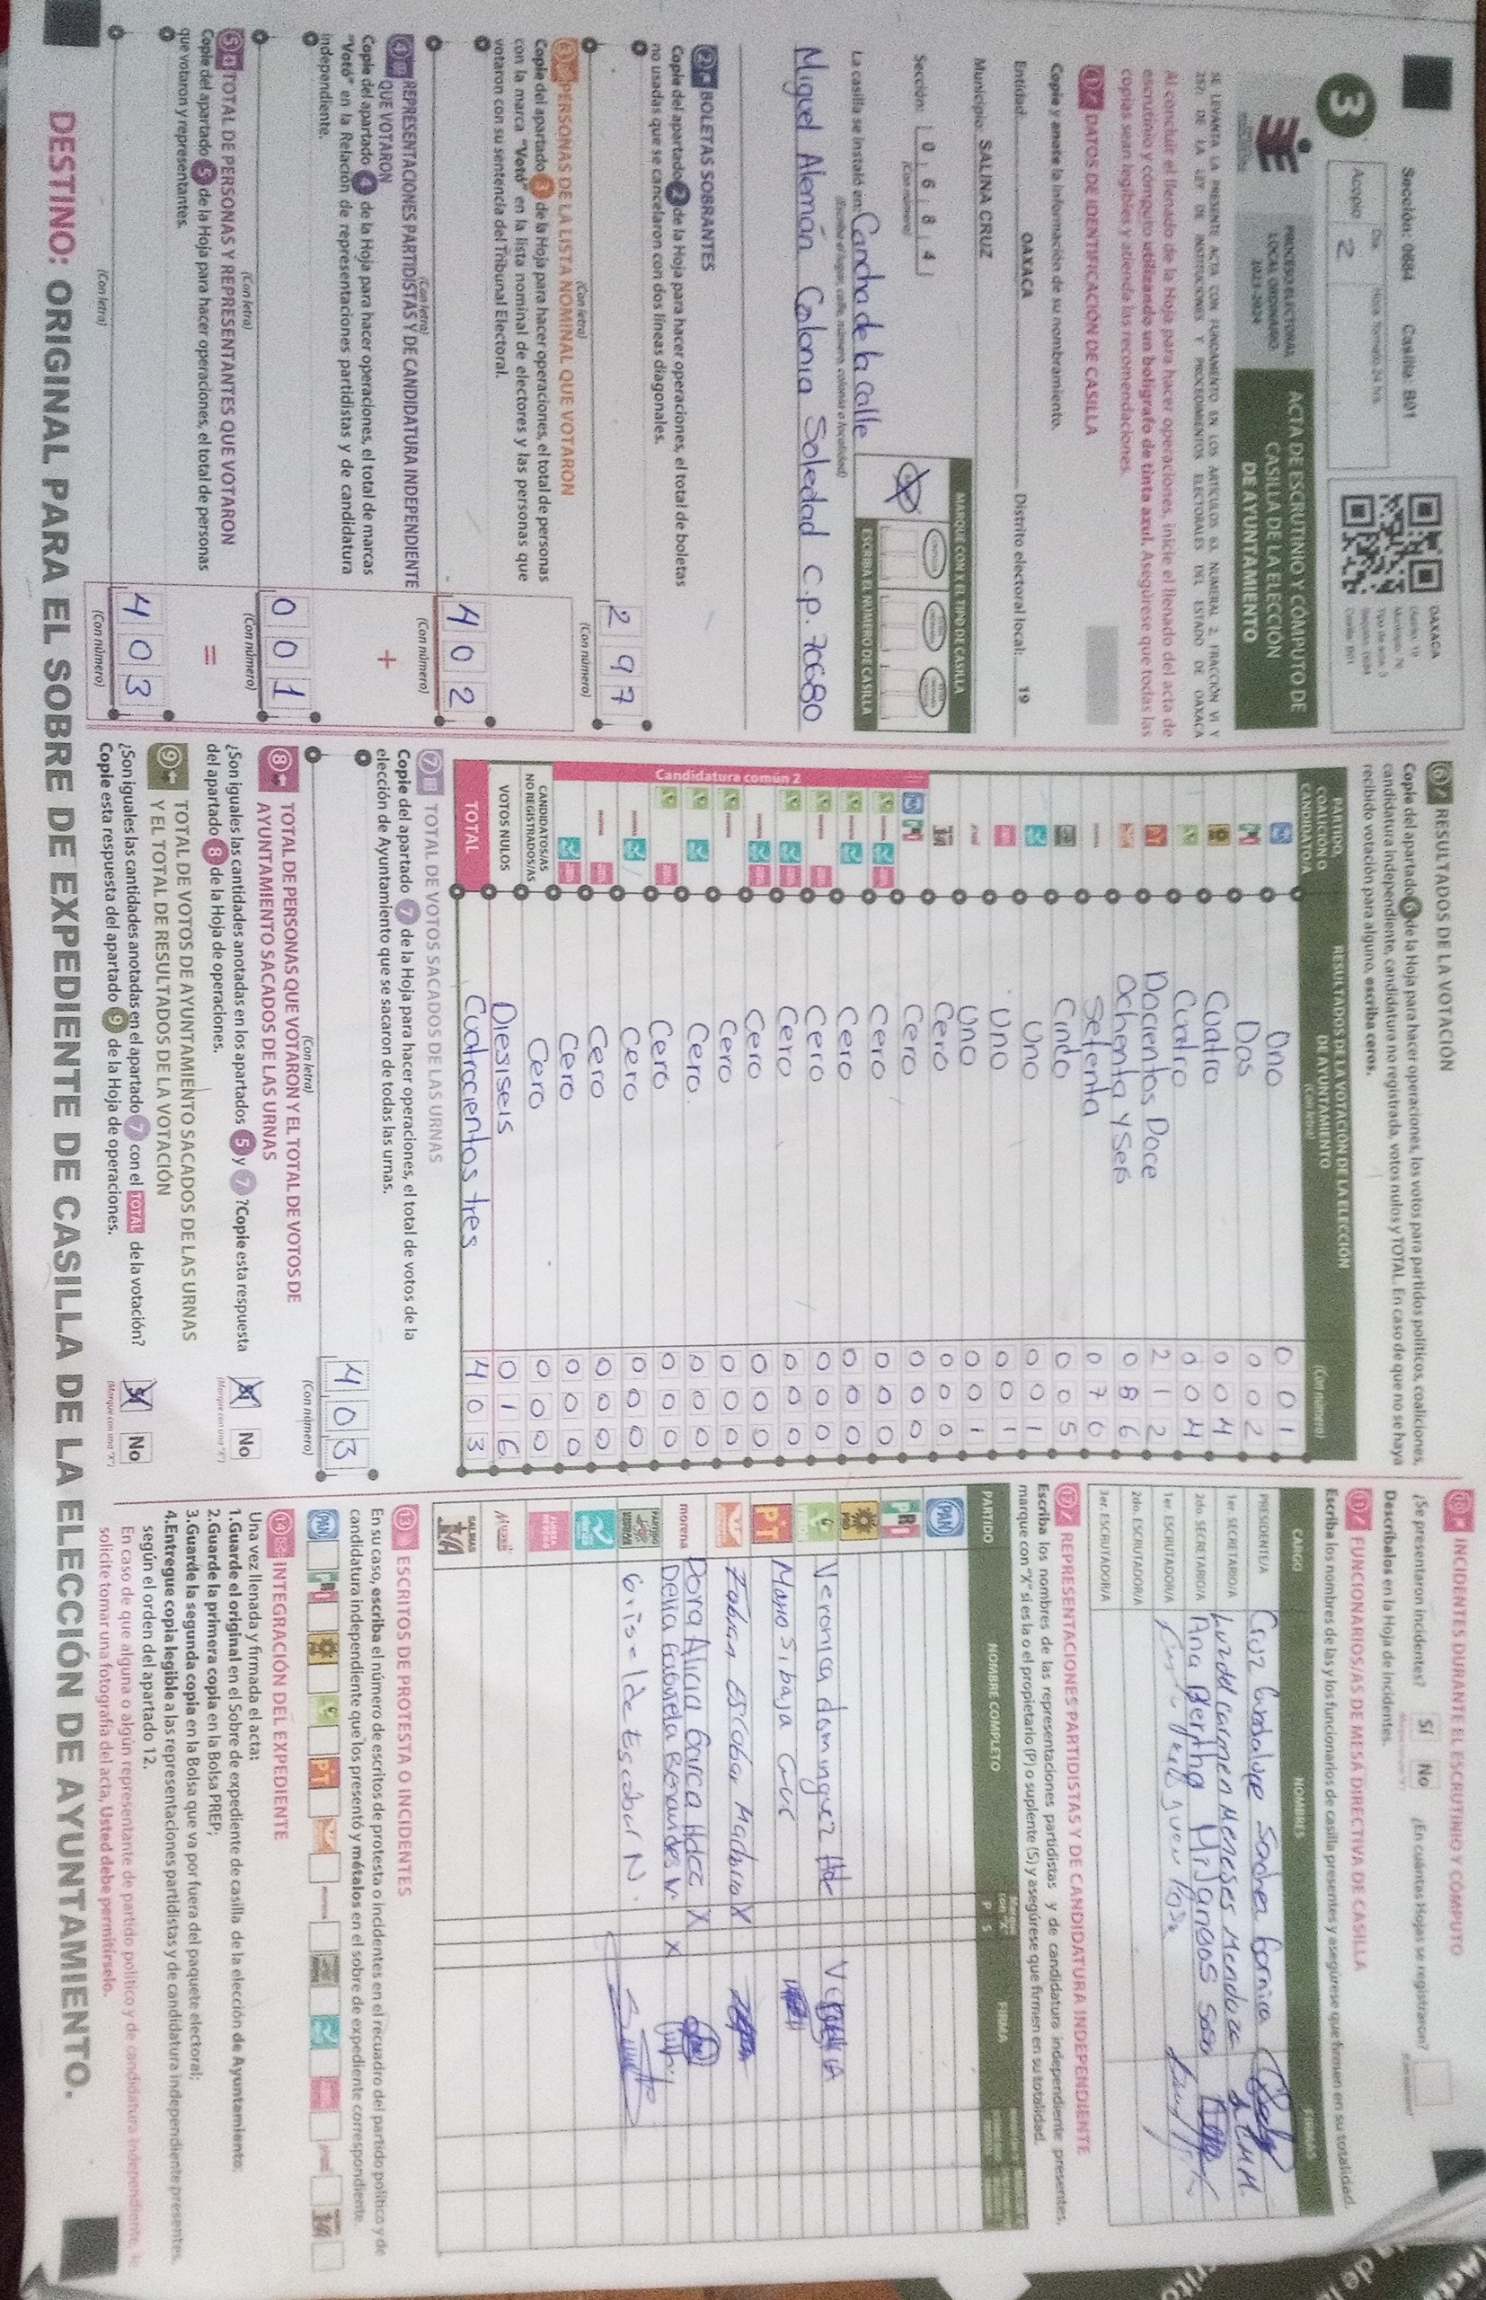 Sección: 0684 Casilla: B01
3
Acopio
2
Día
Hora formato 24 hrs.
OAXACA
PROCESO ELECTORAL
LOCAL ORDINARIO
2023-2024
ACTA DE ESCRUTINIO Y CÓMPUTO DE
CASILLA DE LA ELECCIÓN
DE AYUNTAMIENTO
SE LEVANTA LA PRESENTE ACTA CON FUNDAMENTO EN LOS ARTÍCULOS 63, NUMERAL 2, FRACCIÓN VI Y
257, DE LA LEY DE INSTITUCIONES Y PROCEDIMIENTOS ELECTORALES DEL ESTADO DE OAXACA
Al concluir el llenado de la Hoja para hacer operaciones, inicie el llenado del acta de
escrutinio y cómputo utilizando un bolígrafo de tinta azul. Asegúrese que todas las
copias sean legibles y atienda las recomendaciones.
1 DATOS DE IDENTIFICACIÓN DE CASILLA
Copie y anote la información de su nombramiento.
Entidad: OAXACA Distrito electoral local: 19
Municipio: SALINA CRUZ
Sección: 0 6 8 4
(Con número)
MARQUE CON X EL TIPO DE CASILLA
ESCRIBA EL NÚMERO DE CASILLA
La casilla se instaló en: Cancha de la calle
(Escriba el lugar, calle, número, colonia o localidad)
Miguel Alemán Colonia Soledad C.p. 70680
2 BOLETAS SOBRANTES
Copie del apartado 2 de la Hoja para hacer operaciones, el total de boletas
no usadas que se cancelaron con dos líneas diagonales.
2 9 7
(Con letra) (Con número)
3 PERSONAS DE LA LISTA NOMINAL QUE VOTARON
Copie del apartado 3 de la Hoja para hacer operaciones, el total de personas
con la marca "Votó" en la lista nominal de electores y las personas que
votaron con su sentencia del Tribunal Electoral.
4 0 2
(Con letra) (Con número)
4 REPRESENTACIONES PARTIDISTAS Y DE CANDIDATURA INDEPENDIENTE
QUE VOTARON
+
Copie del apartado 4 de la Hoja para hacer operaciones, el total de marcas
"Votó" en la Relación de representaciones partidistas y de candidatura
independiente.
0 0 1
(Con letra) (Con número)
5 TOTAL DE PERSONAS Y REPRESENTANTES QUE VOTARON
=
Copie del apartado 5 de la Hoja para hacer operaciones, el total de personas
que votaron y representantes.
4 0 3
(Con letra) (Con número)
6 RESULTADOS DE LA VOTACIÓN
Copie del apartado 6 de la Hoja para hacer operaciones, los votos para partidos políticos, coaliciones,
candidatura independiente, candidatura no registrada, votos nulos y TOTAL. En caso de que no se haya
recibido votación para alguno, escriba ceros.
PARTIDO,
COALICIÓN O
CANDIDATO/A
RESULTADOS DE LA VOTACIÓN DE LA ELECCIÓN
DE AYUNTAMIENTO
(Con letra) (Con número)
Uno 0 0 1
Dos 0 0 2
Cuatro 0 0 4
Cuatro 0 0 4
Docientos Doce 2 1 2
Ochenta y Seis 0 8 6
Setenta 0 7 0
Cinco 0 0 5
Uno 0 0 1
Uno 0 0 1
Uno 0 0 1
Cero 0 0 0
Cero 0 0 0
Candidatura común 2
Cero 0 0 0
Cero 0 0 0
Cero 0 0 0
Cero 0 0 0
Cero 0 0 0
Cero 0 0 0
Cero 0 0 0
Cero 0 0 0
Cero 0 0 0
Cero 0 0 0
Cero 0 0 0
CANDIDATOS/AS
NO REGISTRADOS/AS Cero 0 0 0
VOTOS NULOS Diesiseis 0 1 6
TOTAL Cuatrocientos tres 4 0 3
7 TOTAL DE VOTOS SACADOS DE LAS URNAS
Copie del apartado 7 de la Hoja para hacer operaciones, el total de votos de la
elección de Ayuntamiento que se sacaron de todas las urnas.
4 0 3
(Con letra) (Con número)
8 TOTAL DE PERSONAS QUE VOTARON Y EL TOTAL DE VOTOS DE
AYUNTAMIENTO SACADOS DE LAS URNAS
¿Son iguales las cantidades anotadas en los apartados 5 y 7? Copie esta respuesta
del apartado 8 de la Hoja de operaciones.
Sí No
(Marque con una "X")
9 TOTAL DE VOTOS DE AYUNTAMIENTO SACADOS DE LAS URNAS
Y EL TOTAL DE RESULTADOS DE LA VOTACIÓN
¿Son iguales las cantidades anotadas en el apartado 7 con el TOTAL de la votación?
Copie esta respuesta del apartado 9 de la Hoja de operaciones.
Sí No
(Marque con una "X")
10 INCIDENTES DURANTE EL ESCRUTINIO Y CÓMPUTO
¿Se presentaron incidentes? Sí No ¿En cuántas Hojas se registraron?
Descríbalos en la Hoja de incidentes.
11 FUNCIONARIOS/AS DE MESA DIRECTIVA DE CASILLA
Escriba los nombres de las y los funcionarios de casilla presentes y asegúrese que firmen en su totalidad.
CARGO NOMBRES FIRMAS
PRESIDENTE/A Cruz Guadalupe Sanchez
1er. SECRETARIO/A Luz del carmen Meneses Mendoza
2do. SECRETARIO/A Ana Bertha Mijangos
1er. ESCRUTADOR/A
2do. ESCRUTADOR/A
3er. ESCRUTADOR/A
12 REPRESENTACIONES PARTIDISTAS Y DE CANDIDATURA INDEPENDIENTE
Escriba los nombres de las representaciones partidistas y de candidatura independiente presentes,
marque con "X" si es la o el propietario (P) o suplente (S) y asegúrese que firmen en su totalidad.
PARTIDO NOMBRE COMPLETO P S FIRMA
PAN
PRI
PRD
Veronica dominguez Hde
PT Mario Sibaja Cruz
Fabian Escobar X
morena Dora Alicia Garcia Hdez X
Delia Gabriela X
Griselda Escobar N.
13 ESCRITOS DE PROTESTA O INCIDENTES
En su caso, escriba el número de escritos de protesta o incidentes en el recuadro del partido político y de
candidatura independiente que los presentó y métalos en el sobre de expediente correspondiente.
PAN PRI PT
14 INTEGRACIÓN DEL EXPEDIENTE
Una vez llenada y firmada el acta:
1.Guarde el original en el Sobre de expediente de casilla de la elección de Ayuntamiento;
2.Guarde la primera copia en la Bolsa PREP;
3.Guarde la segunda copia en la Bolsa que va por fuera del paquete electoral;
4.Entregue copia legible a las representaciones partidistas y de candidatura independiente presentes,
según el orden del apartado 12.
En caso de que alguna o algún representante de partido político y de candidatura independiente, le
solicite tomar una fotografía del acta, Usted debe permitírselo.
DESTINO: ORIGINAL PARA EL SOBRE DE EXPEDIENTE DE CASILLA DE LA ELECCIÓN DE AYUNTAMIENTO.